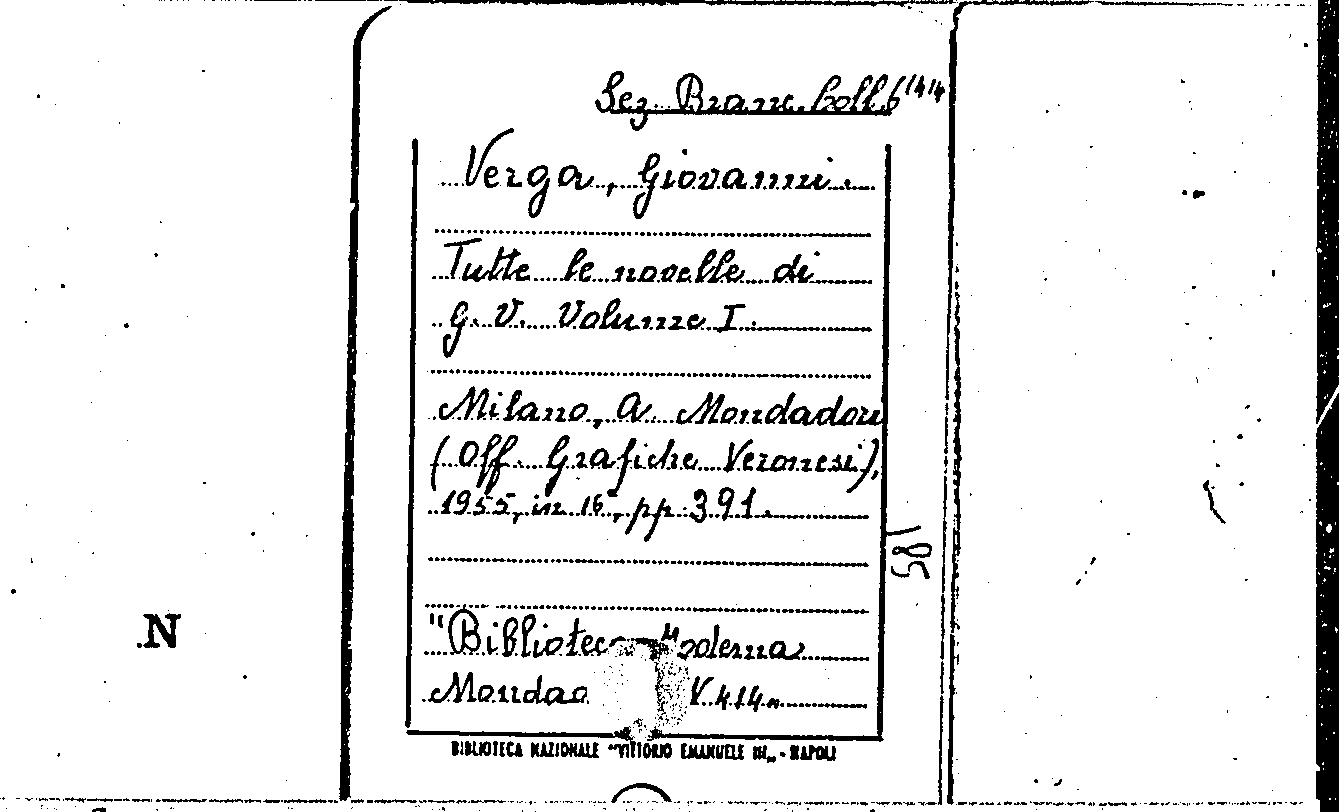 Sez. Branc. Coll. 6 /414
Verga, Giovanni.
Tutte le novelle di
G. V. Volume I.
Milano, A. Mondadori
(Off. Grafiche Veronesi),
1955, in 16°, pp. 391.
185
"Biblioteca Moderna
Mondad V. 414"
BIBLIOTECA NAZIONALE "VITTORIO EMANUELE III„ - NAPOLI
.N